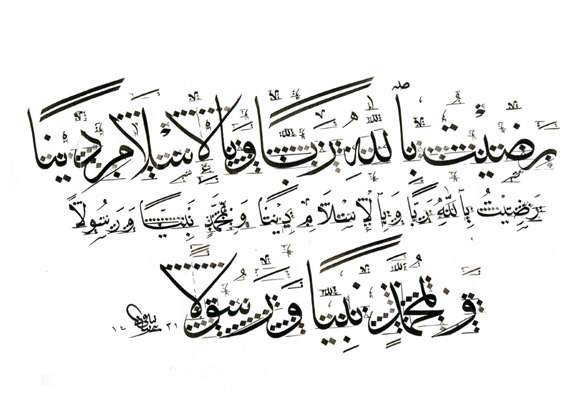 رَضِيْتُ بِاللهِ رَبًّا وَبِالْإِسْلَامِ دِيْنًا
رَضِيْتُ بِاللهِ رَبًّا وَبِالْإِسْلَامِ دِيْنًا وَبِمُحَمَّدٍ نَبِيًّا وَرَسُوْلًا
وَبِمُحَمَّدٍ نَبِيًّا وَرَسُوْلًا